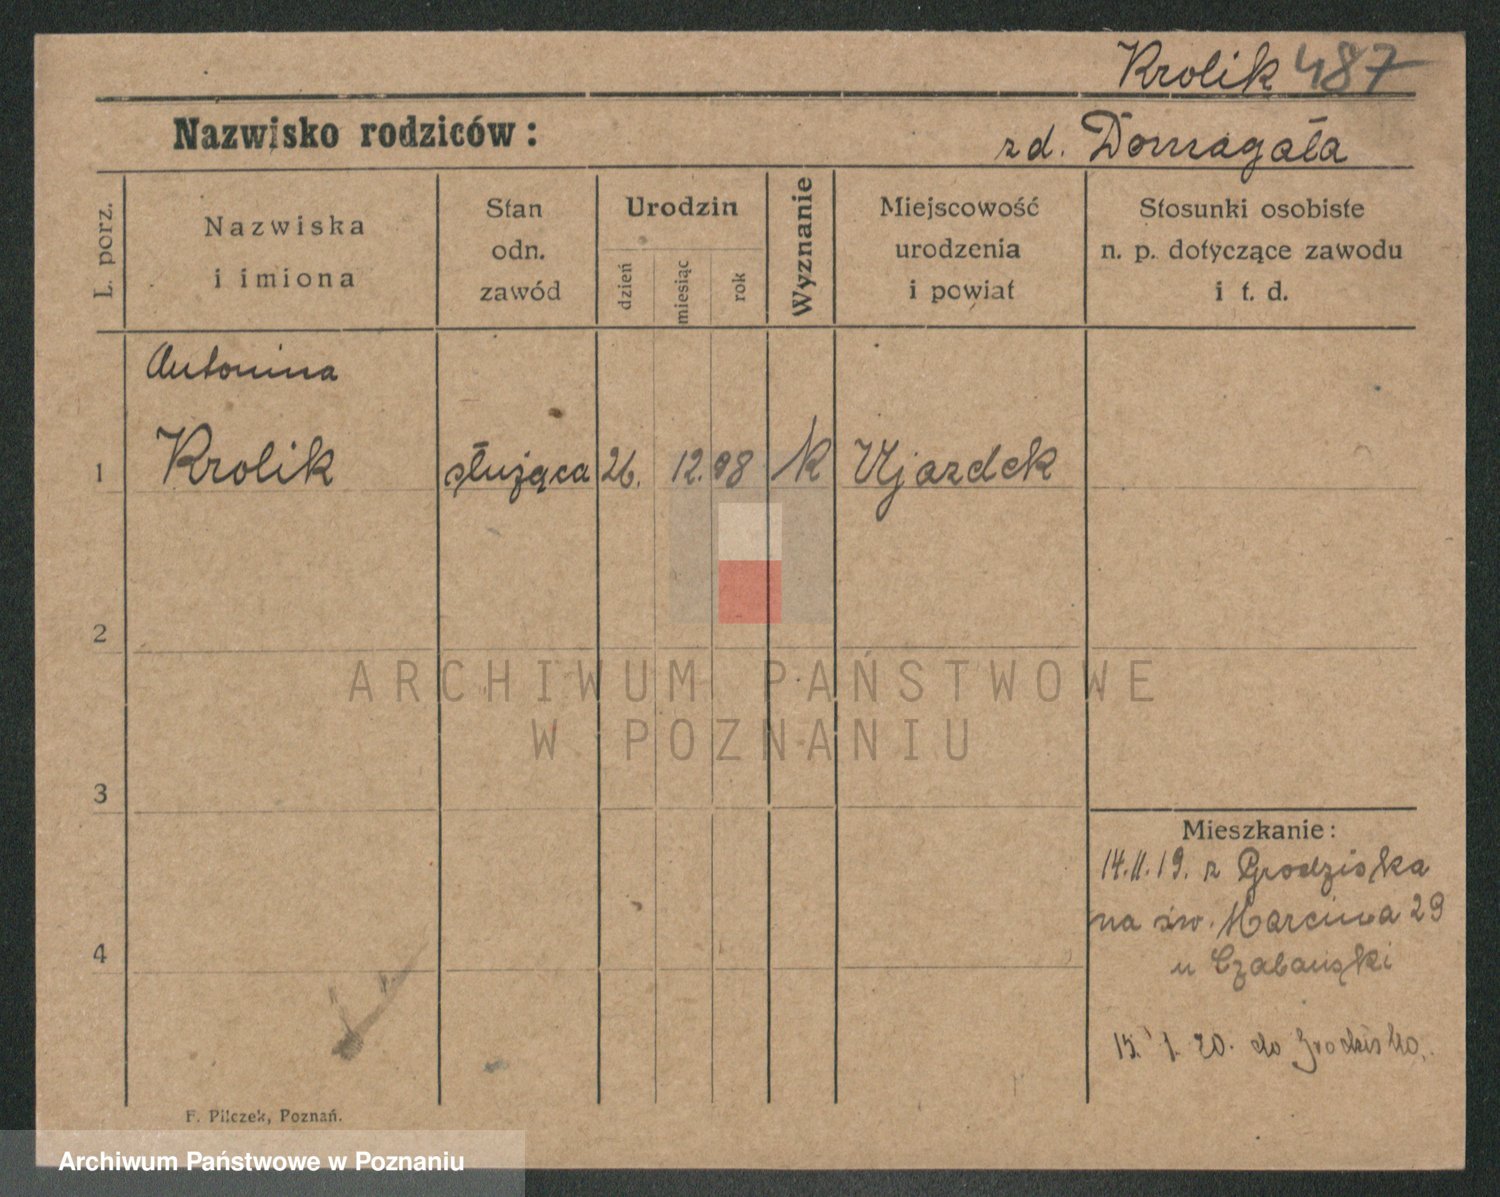 Krolik 487
Nazwisko rodziców:
zd. Domagała
L. porz.
Nazwiska
i imiona
Stan
odn.
zawód
Urodzin
dzień
miesiąc
rok
Wyznanie
Miejscowość
urodzenia
i powiat
Stosunki osobiste
n. p. dotyczące zawodu
i t. d.
Antonina
1 Krolik służąca 26. 12. 98 K Ujazdek
2
ARCHIWUM PAŃSTWOWE
W POZNANIU
3
Mieszkanie:
14.11.19. z Grodziska
na św. Marcina 29
u Czabański
4
15. 1. 20. do Grodziska.
F. Pilczek, Poznań.
Archiwum Państwowe w Poznaniu